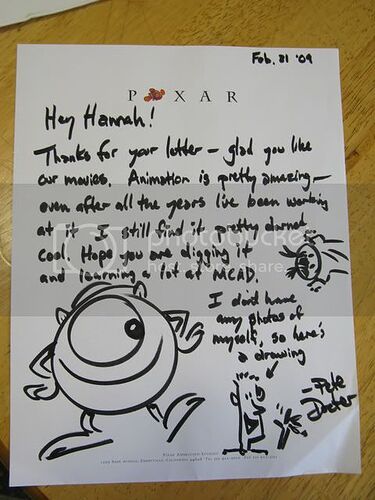 Feb. 21 '09
PIXAR
Hey Hannah!
Thanks for your letter — glad you like
our movies. Animation is pretty amazing —
even after all the years I've been working
at it I still find it pretty darned
cool. Hope you are digging it
and learning a lot at MCAD.
I don't have
any photos of
myself, so here's
a drawing
— Pete
Docter
photobucket